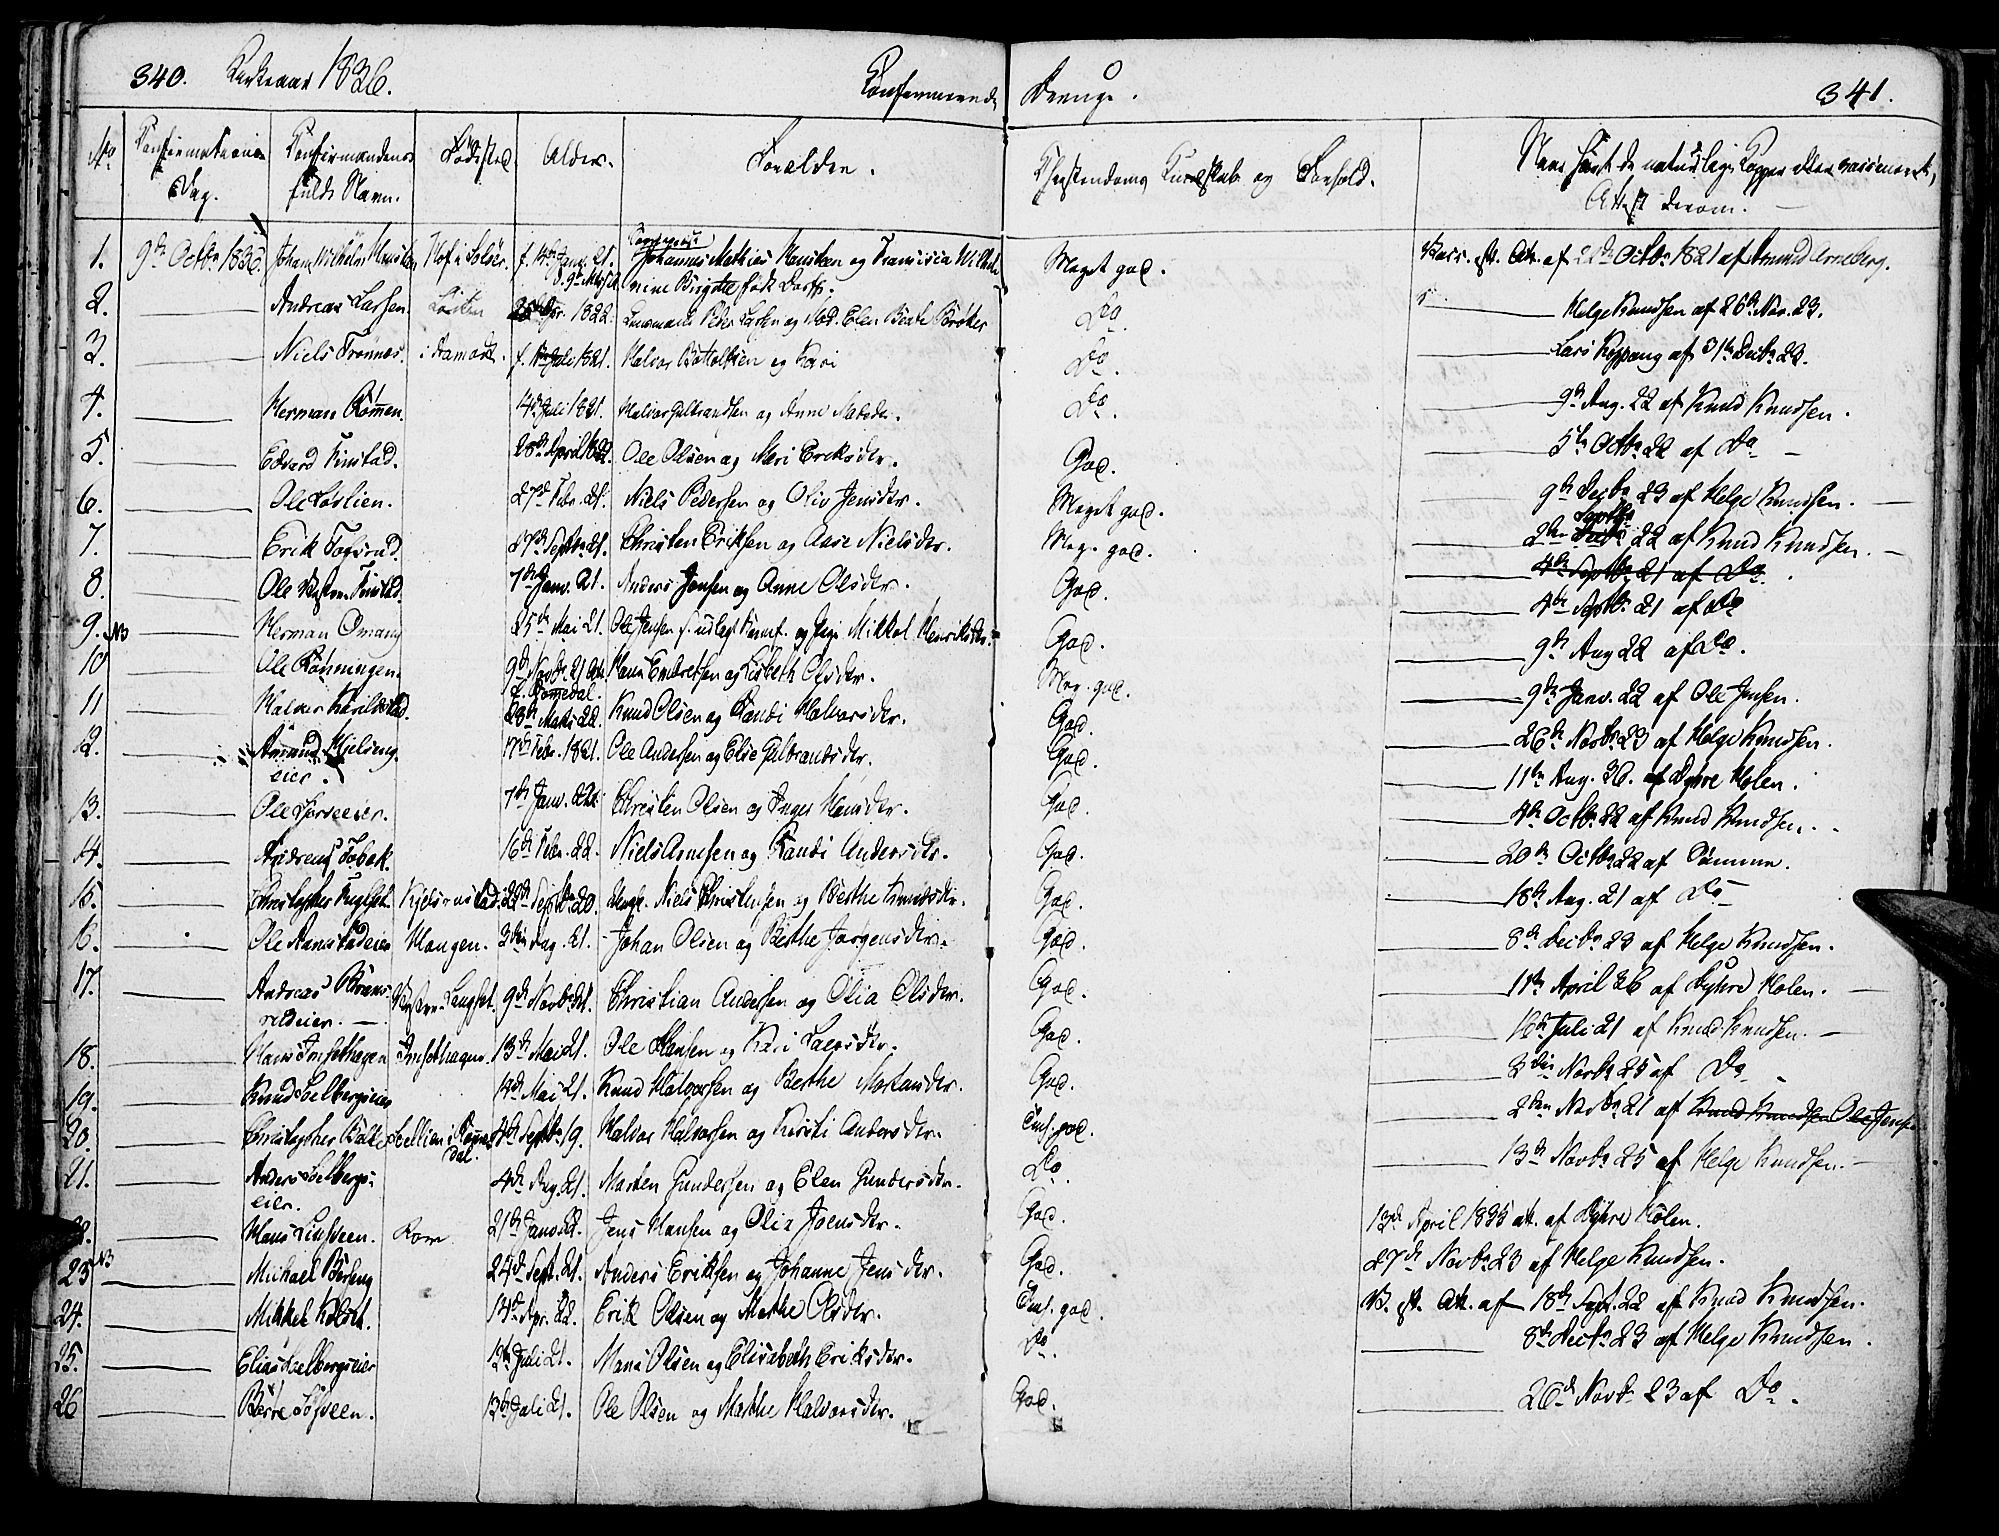 340. Kirkeaar 1836. Confirmerede Drenge. 341.
No Confirmations Dag. Confirmandens fulde Navn. Fødested Alder. Forældre. Christendoms Kundskab og Forhold. Naar havt de naturlige Kopper eller vaccineret, Attest derom.
1. 9de Octbr 1836. Johan Wilhelm Hansteen Hof i Solør. f. 14de Janr. 21. Johannes Mathias Hansteen og Francisca Wilhelmine Birgitte født Meget god. Vacc. st. Att. af 21de Octbr 1821 af Amund Arneberg.
2. Andreas Larsen. Løiten Apr. 1822. Lensmand Peder Larsen og Mad. Elen Beate Do. Helge Knudsen af 26de Nov. 23.
3. Niels Trønnes. i Aamodt. f. Juli 1821. Halvor Bottolfsen og Kari Do. Lars Koppang af 31te Decbr 23.
4. Herman Rømen. 14de Juli 1821. Halvor Gulbrandsen og Anne Do. 9de Aug. 22 af Knud Knudsen.
5. Edvard Finstad. 28de April 1822. Ole Olsen og Mari Eriksdtr. God. 5te Octbr 22 af Do
6. Ole Løslien. 27de Febr. 21. Niels Pedersen og Olia Jensdtr. Meget god. 9de Decbr 23 af Helge Knudsen.
7. Erik Tofsrud. 27de Septbr 21. Christen Eriksen og Aase Nielsdtr. Meg. god. 2den Septbr 22 af Knud Knudsen.
8. Ole Finstad. 7de Janv. 21. Anders Jensen og Anne Olsdtr. God. 4de Septbr 21 af Do
4de Septbr 21 af Do
9. NB Herman Omang 25de Mai 21. Ole Jensen og Pige Mikkol Henriksdtr. God. 9de Aug 22 af Do.
10 Ole Rønningen. 9de Novbr. 21 Hans Embretsen og Lisbeth Olsdtr. Meg. god. 9de Janv. 22 af Ole Jensen.
11 Halvor Karilstad. 23de Marts 22. Knud Olsen og Randi Halvorsdtr. God. 26de Novbr 23 af Helge Knudsen.
12. Amund Kielseng eier. 17de Febr. 1821. Ole Andersen og Elie Gulbrandsdtr. God. 11te Aug. 36. af Dyhre Holen.
13. Ole Løvseeier. 7de Janv. 22. Christen Olsen og Inger Hansdtr. God. 4de Octbr 22 af Knud Knudsen.
14. Andreas Tobak. 16de Febr. 22. Niels Arnesen og Randi Andersdtr. God. 20de Octbr 22 af Samme.
15. Christopher Fuglset. Kjelsonstad. 22de Septbr 20. Niels Christensen og Berthe Knudsdtr. God. 18de Aug. 21 af Do
16. Ole Aamstadeier Mangen. 3die Aug. 21. Johan Olsen og Berthe Jørgensdtr. God. 8de Decbr 23 af Helge Knudsen.
17. Andreas eier. Vestre Lengset. 9de Novbr 21. Christian Andersen og Olia Olsdtr. God. 11te April 36 af Dyhre Holen.
18. Hans Imsethagen Imsethagen. 13de Mai 21. Ole Hansen og Kari Larsdtr. God. 16de Juli 21 af Knud Knudsen.
19. Knud Solbergseier 14de Mai 21. Knud Halvorsen og Berthe Mortensdtr. God. 3die Novbr 25 af Do
20. Christopher Balke i Romedal. Septbr 19. Halvor Halvorsen og Kirsti Andersdtr. Tem. god. 2den Novbr 21 af Knud Knudsen Ole Jensen
21. Anders Solbergseier. 4de Aug. 21. Morten Gundersen og Elen Gundersdtr. Do. 13de Novbr 25 af Helge Knudsen.
22. Hans Lusveen. Rom 21de Janv. 22. Jens Hansen og Olia Joensdtr. God. 13de April 1835 att. af Dyhre Holen.
23 NB Michael Berlug 24de Sept. 21. Anders Eriksen og Johanne Jensdtr. God. 27de Novbr 23 af Helge Knudsen.
24. Mikkel Koldst. 14de Apr. 22. Erik Olsen og Marthe Olsdtr. Tem. god. V. st. Att. af 18de Sept. 22 af Knud Knudsen.
25. Elias Solbergseier 13de Juli 21. Hans Olsen og Elisabeth Eriksdtr. Do. 8de Decbr 23 af Helge Knudsen.
26 Berre Løsveen. 13de Juli 21. Ole Olsen og Marthe Halvorsdtr. God. 26de Novbr 23 af Do.